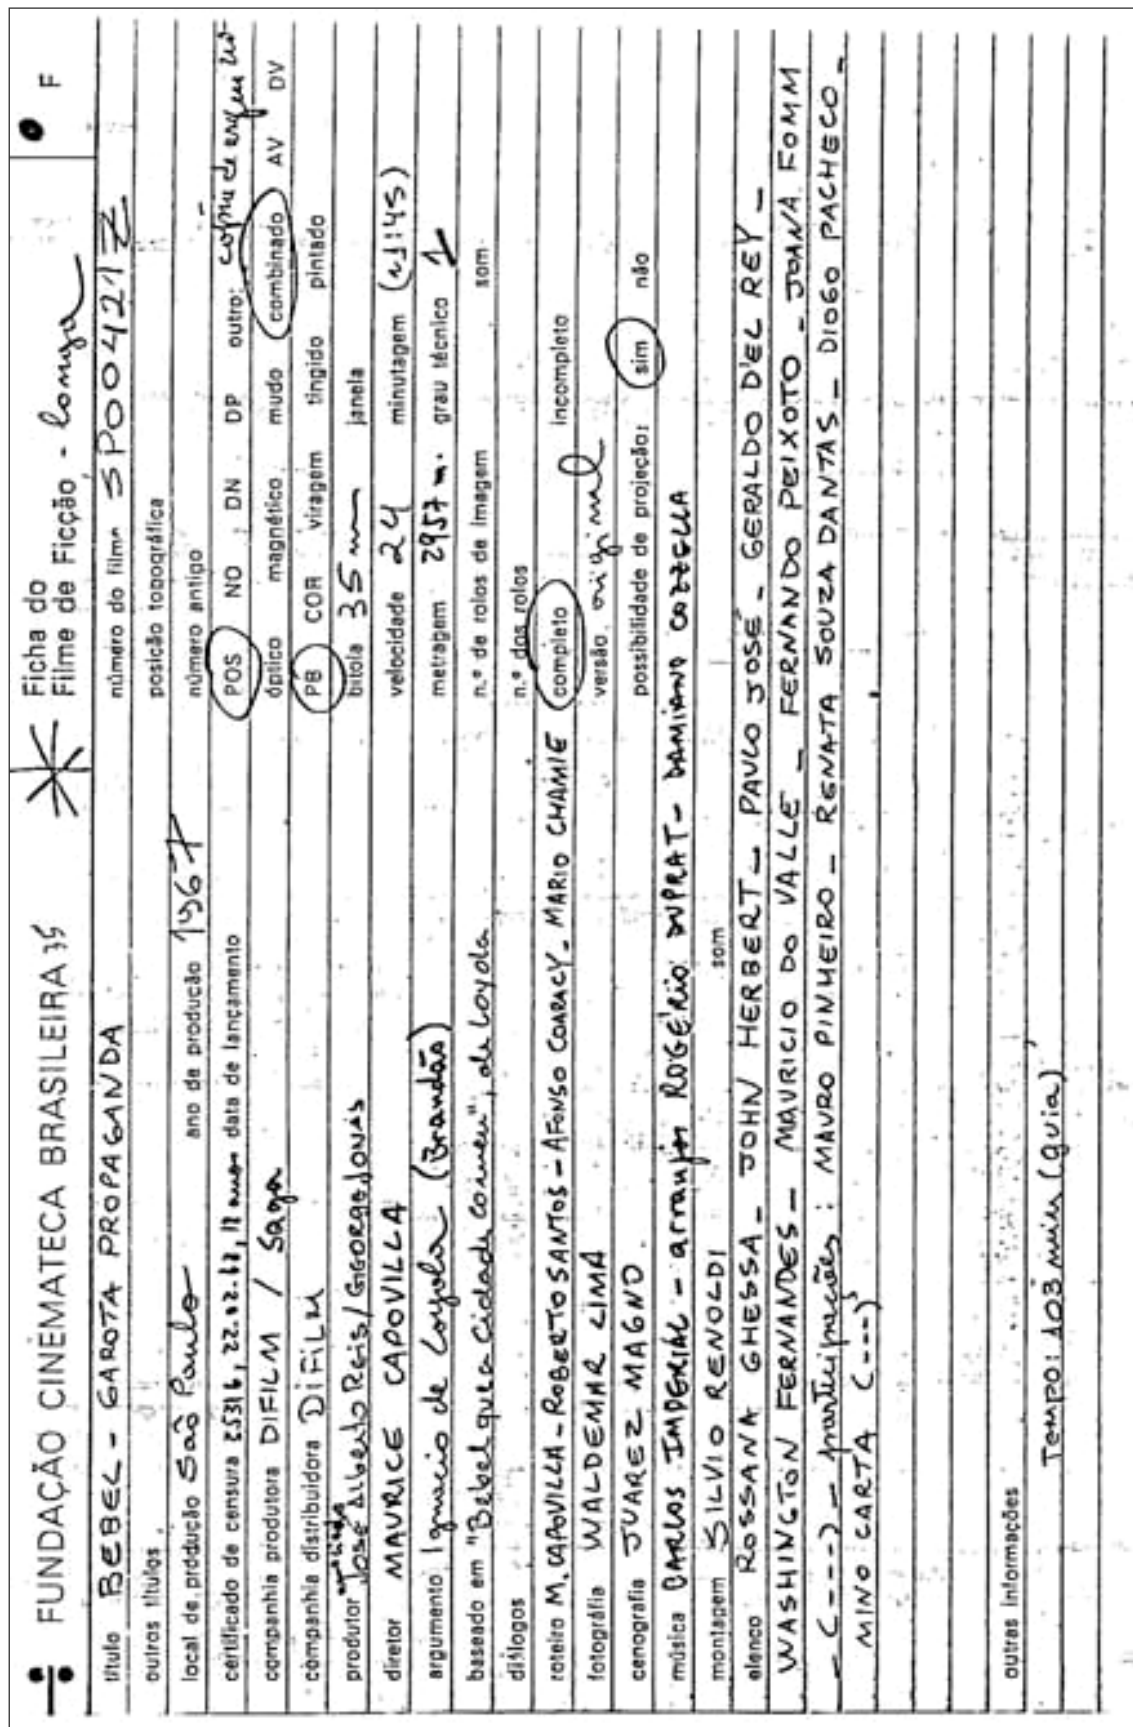 FUNDAÇÃO CINEMATECA BRASILEIRA
Ficha do
Filme de Ficção - longa
F
título BEBEL - GAROTA PROPAGANDA
número do filme SP00421Z
outros títulos
posição topográfica
local de produção São Paulo ano de produção 1967
número antigo -
certificado de censura 25316, 22.02.67, 18 anos data de lançamento
POS NO DN DP outro:
companhia produtora DIFILM / Saga
óptico magnético mudo combinado AV DV
companhia distribuidora DIFILM
PB COR viragem tingido pintado
produtor José Alberto Reis / GEORGE JONAS
bitola 35 mm janela
diretor MAURICE CAPOVILLA
velocidade 24 minutagem (~1:45)
argumento Ignacio de Loyola (Brandão)
metragem 2957 m. grau técnico 1
baseado em "Bebel que a cidade comeu", de Loyola
n.º de rolos de imagem som
diálogos
n.º dos rolos
roteiro M. CAPOVILLA - ROBERTO SANTOS - AFONSO COARACY - MARIO CHAMIE
completo incompleto
fotografia WALDEMAR LIMA
versão original
cenografia JUAREZ MAGNO
possibilidade de projeção: sim não
música CARLOS IMPERIAL - arranjos ROGÉRIO DUPRAT - DAMIANO COZZELLA
montagem SILVIO RENOLDI som
elenco ROSSANA GHESSA - JOHN HERBERT - PAULO JOSÉ - GERALDO D'EL REY -
WASHINGTON FERNANDES - MAURICIO DO VALLE - FERNANDO PEIXOTO - JOANA FOMM
- (---) - participações: MAURO PINHEIRO - RENATA SOUZA DANTAS - DIOGO PACHECO -
MINO CARTA (---)
outras informações
Tempo: 103 min (guia)